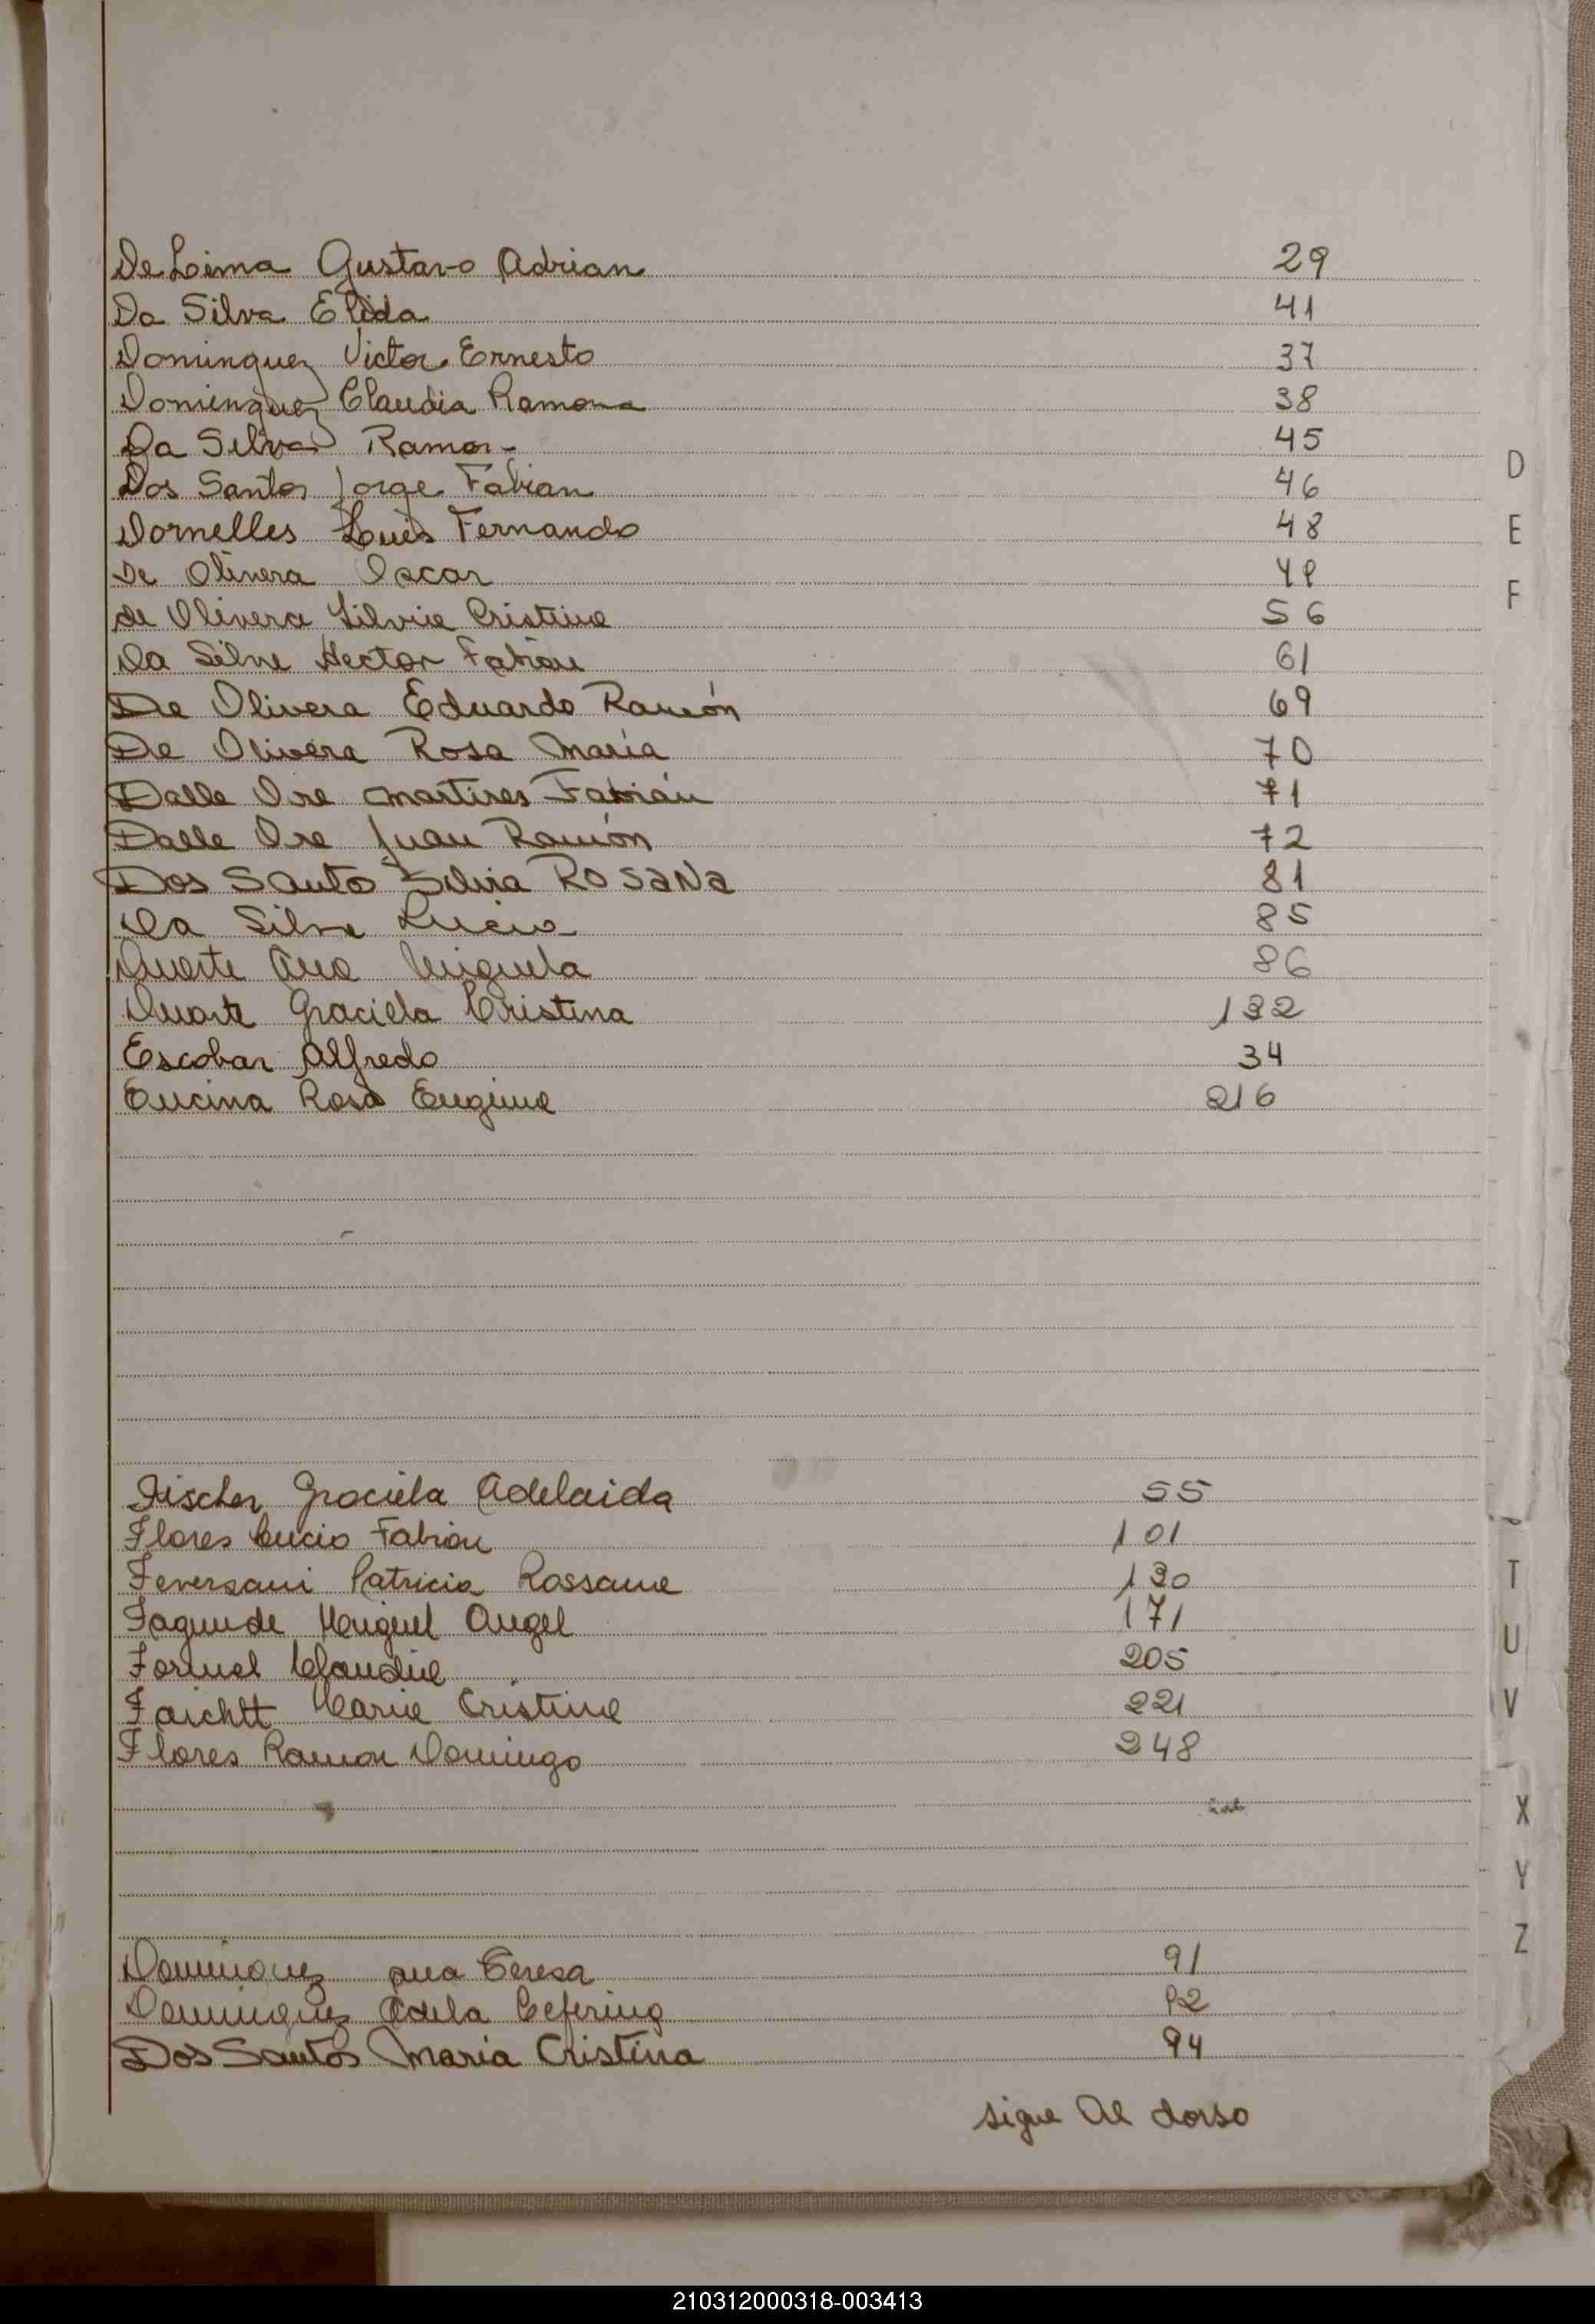 De Lima Gustavo Adrian 29
Da Silva Elida 41
Dominguez Victor Ernesto 37
Dominguez Claudia Ramona 38
Da Silva Ramon 45
Dos Santos Jorge Fabian 46
Dornelles Luis Fernando 48
De Olivera Oscar 49
de Olivera Silvia Cristina 56
Da Silva Hector Fabian 61
De Olivera Eduardo Ramón 69
De Olivera Rosa María 70
Dalle Ore Martires Fabián 71
Dalle Ore Juan Ramón 72
Dos Santo Silvia ROSANA 81
Da Silva Lucia 85
Duarte Ana Miguela 86
Duarte Graciela Cristina 132
Escobar Alfredo 34
Encina Rosa Eugenia 216
Fischer Graciela Adelaida 55
Flores Lucio Fabian 101
Feversani Patricia Rossana 130
Fagunde Miguel Angel 171
Claudia 205
Faichtt Maria Cristina 221
Flores Ramon Domingo 248
Dominguez Ana Teresa 91
Dominguez Adela Ceferina 92
Dos Santos Maria Cristina 94
sigue Al dorso
D
E
F
T
U
V
X
Y
Z
210312000318-003413